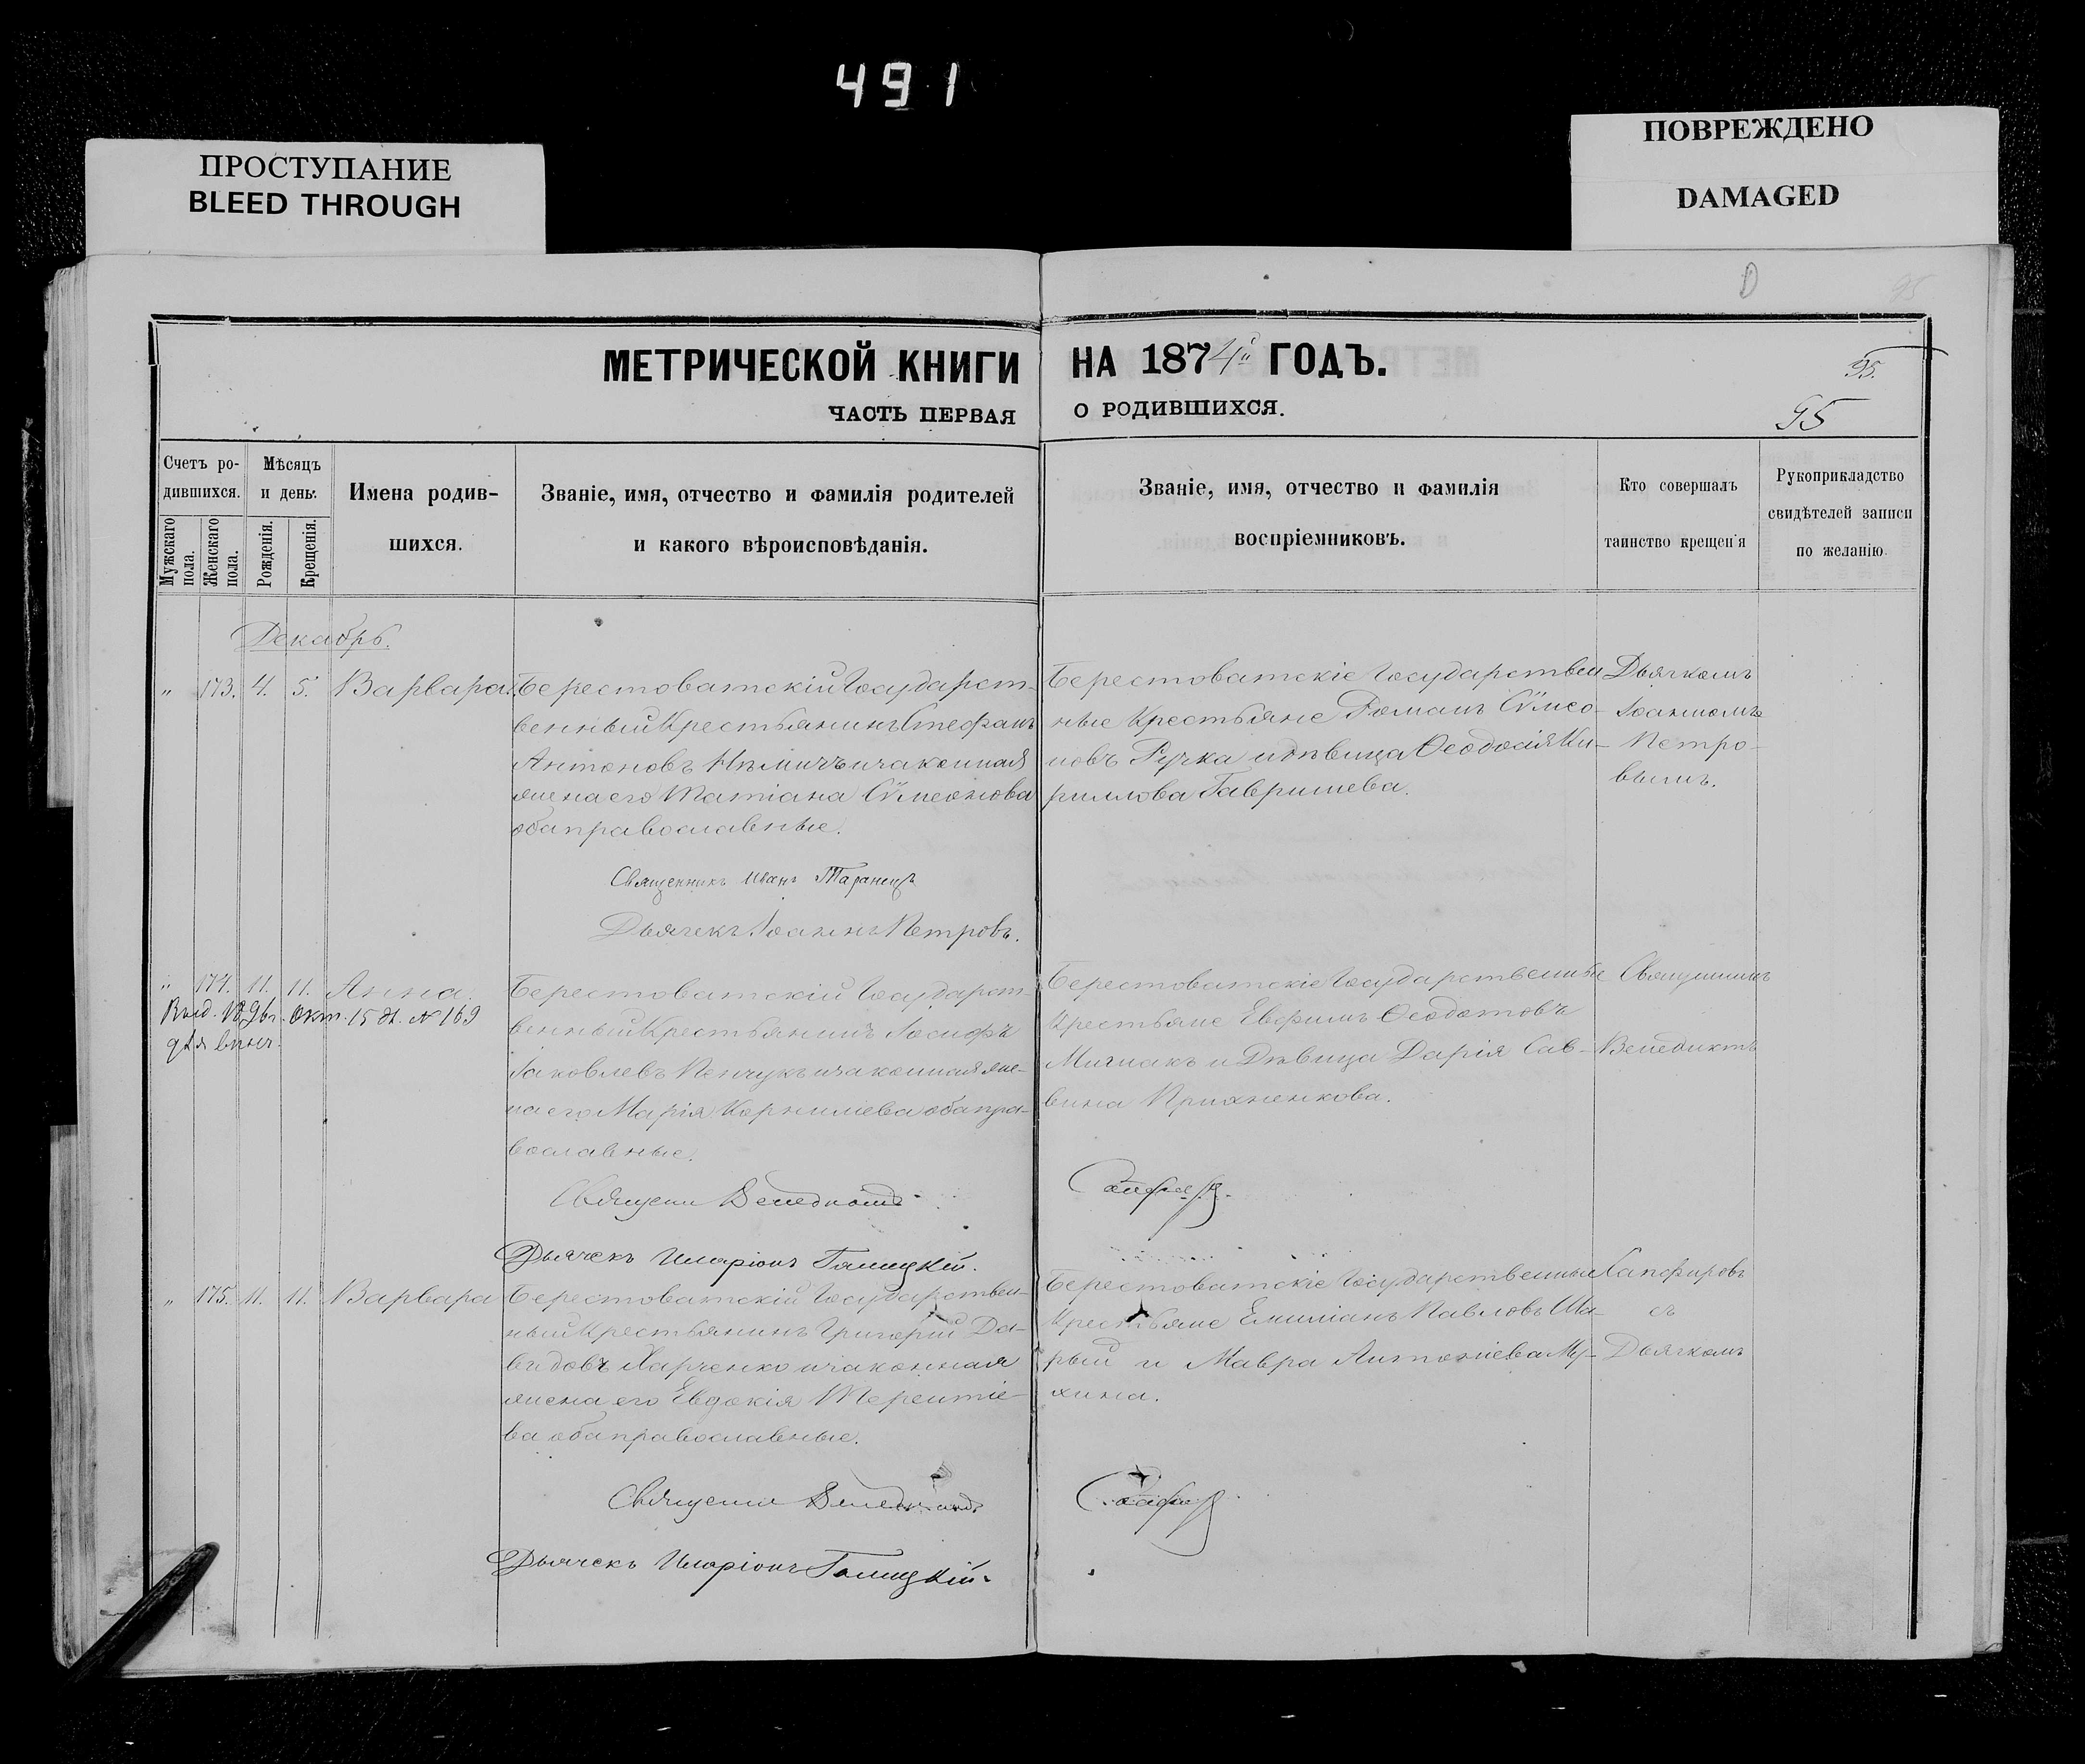 491
ПРОСТУПАНИЕ
BLEED THROUGH
ПОВРЕЖДЕНО
DAMAGED
МЕТРИЧЕСКОЙ КНИГИ НА 1874й ГОДЪ.
95.
ЧАСТЬ ПЕРВАЯ О РОДИВШИХСЯ.
95
Счетъ ро-
дившихся.
Мужскаго пола.
Женскаго пола.
Мѣсяцъ
и день.
Рожденія.
Крещенія.
Имена родив-
шихся.
Званіе, имя, отчество и фамилія родителей
и какого вѣроисповѣданія.
Званіе, имя, отчество и фамилія
воспріемниковъ.
Кто совершалъ
таинство крещенія
Рукоприкладство
свидѣтелей записи
по желанію.
Декабрь.
" 173. 4. 5. Варвара.
Берестоватскій Государст-
венный Крестьянинъ Стефанъ
Антоновъ Нѣмичъ и законная
жена его Татіана Сѵмеонова
оба православные.
Священникъ Иванъ Таранецъ
Дьячекъ Іоаннъ Петровъ.
Берестоватскіе Государствен
ные Крестьяне Романъ Сѵмео-
новъ Ручка и дѣвица Ѳеодосія Ки-
риллова Гаврилева.
Дьячкомъ
Іоанномъ
Петро-
вымъ.
" 174. 11. 11. Анна.
Окт. 15 д. № 169
для вѣнч.
Берестоватскій Государст-
венный Крестьянинъ Іосифъ
Іаковлевъ Пенчукъ и законная же-
на его Марія Корнилева оба пра-
вославные.
Священ Венедиктъ
Дьячекъ Иларіонъ Галицкій.
Берестоватскіе Государственные
Крестьяне Евфимъ Ѳеодотовъ
и Дѣвица Дарія Сав-
вина
Священникъ
Венедиктъ
" 175. 11. 11. Варвара
Берестоватскій Государствен-
ный Крестьянинъ Григорій Да-
видовъ Харченко и законная
жена его Евдокія Терентіе-
ва оба православные.
Священ Венедиктъ
Дьячекъ Иларіонъ Галицкій.
Берестоватскіе Государственные
Крестьяне Емиліанъ Павловъ Ша-
рый и Мавра Антоніева Му-
хина.
Сапфировъ
съ
Дьячкомъ